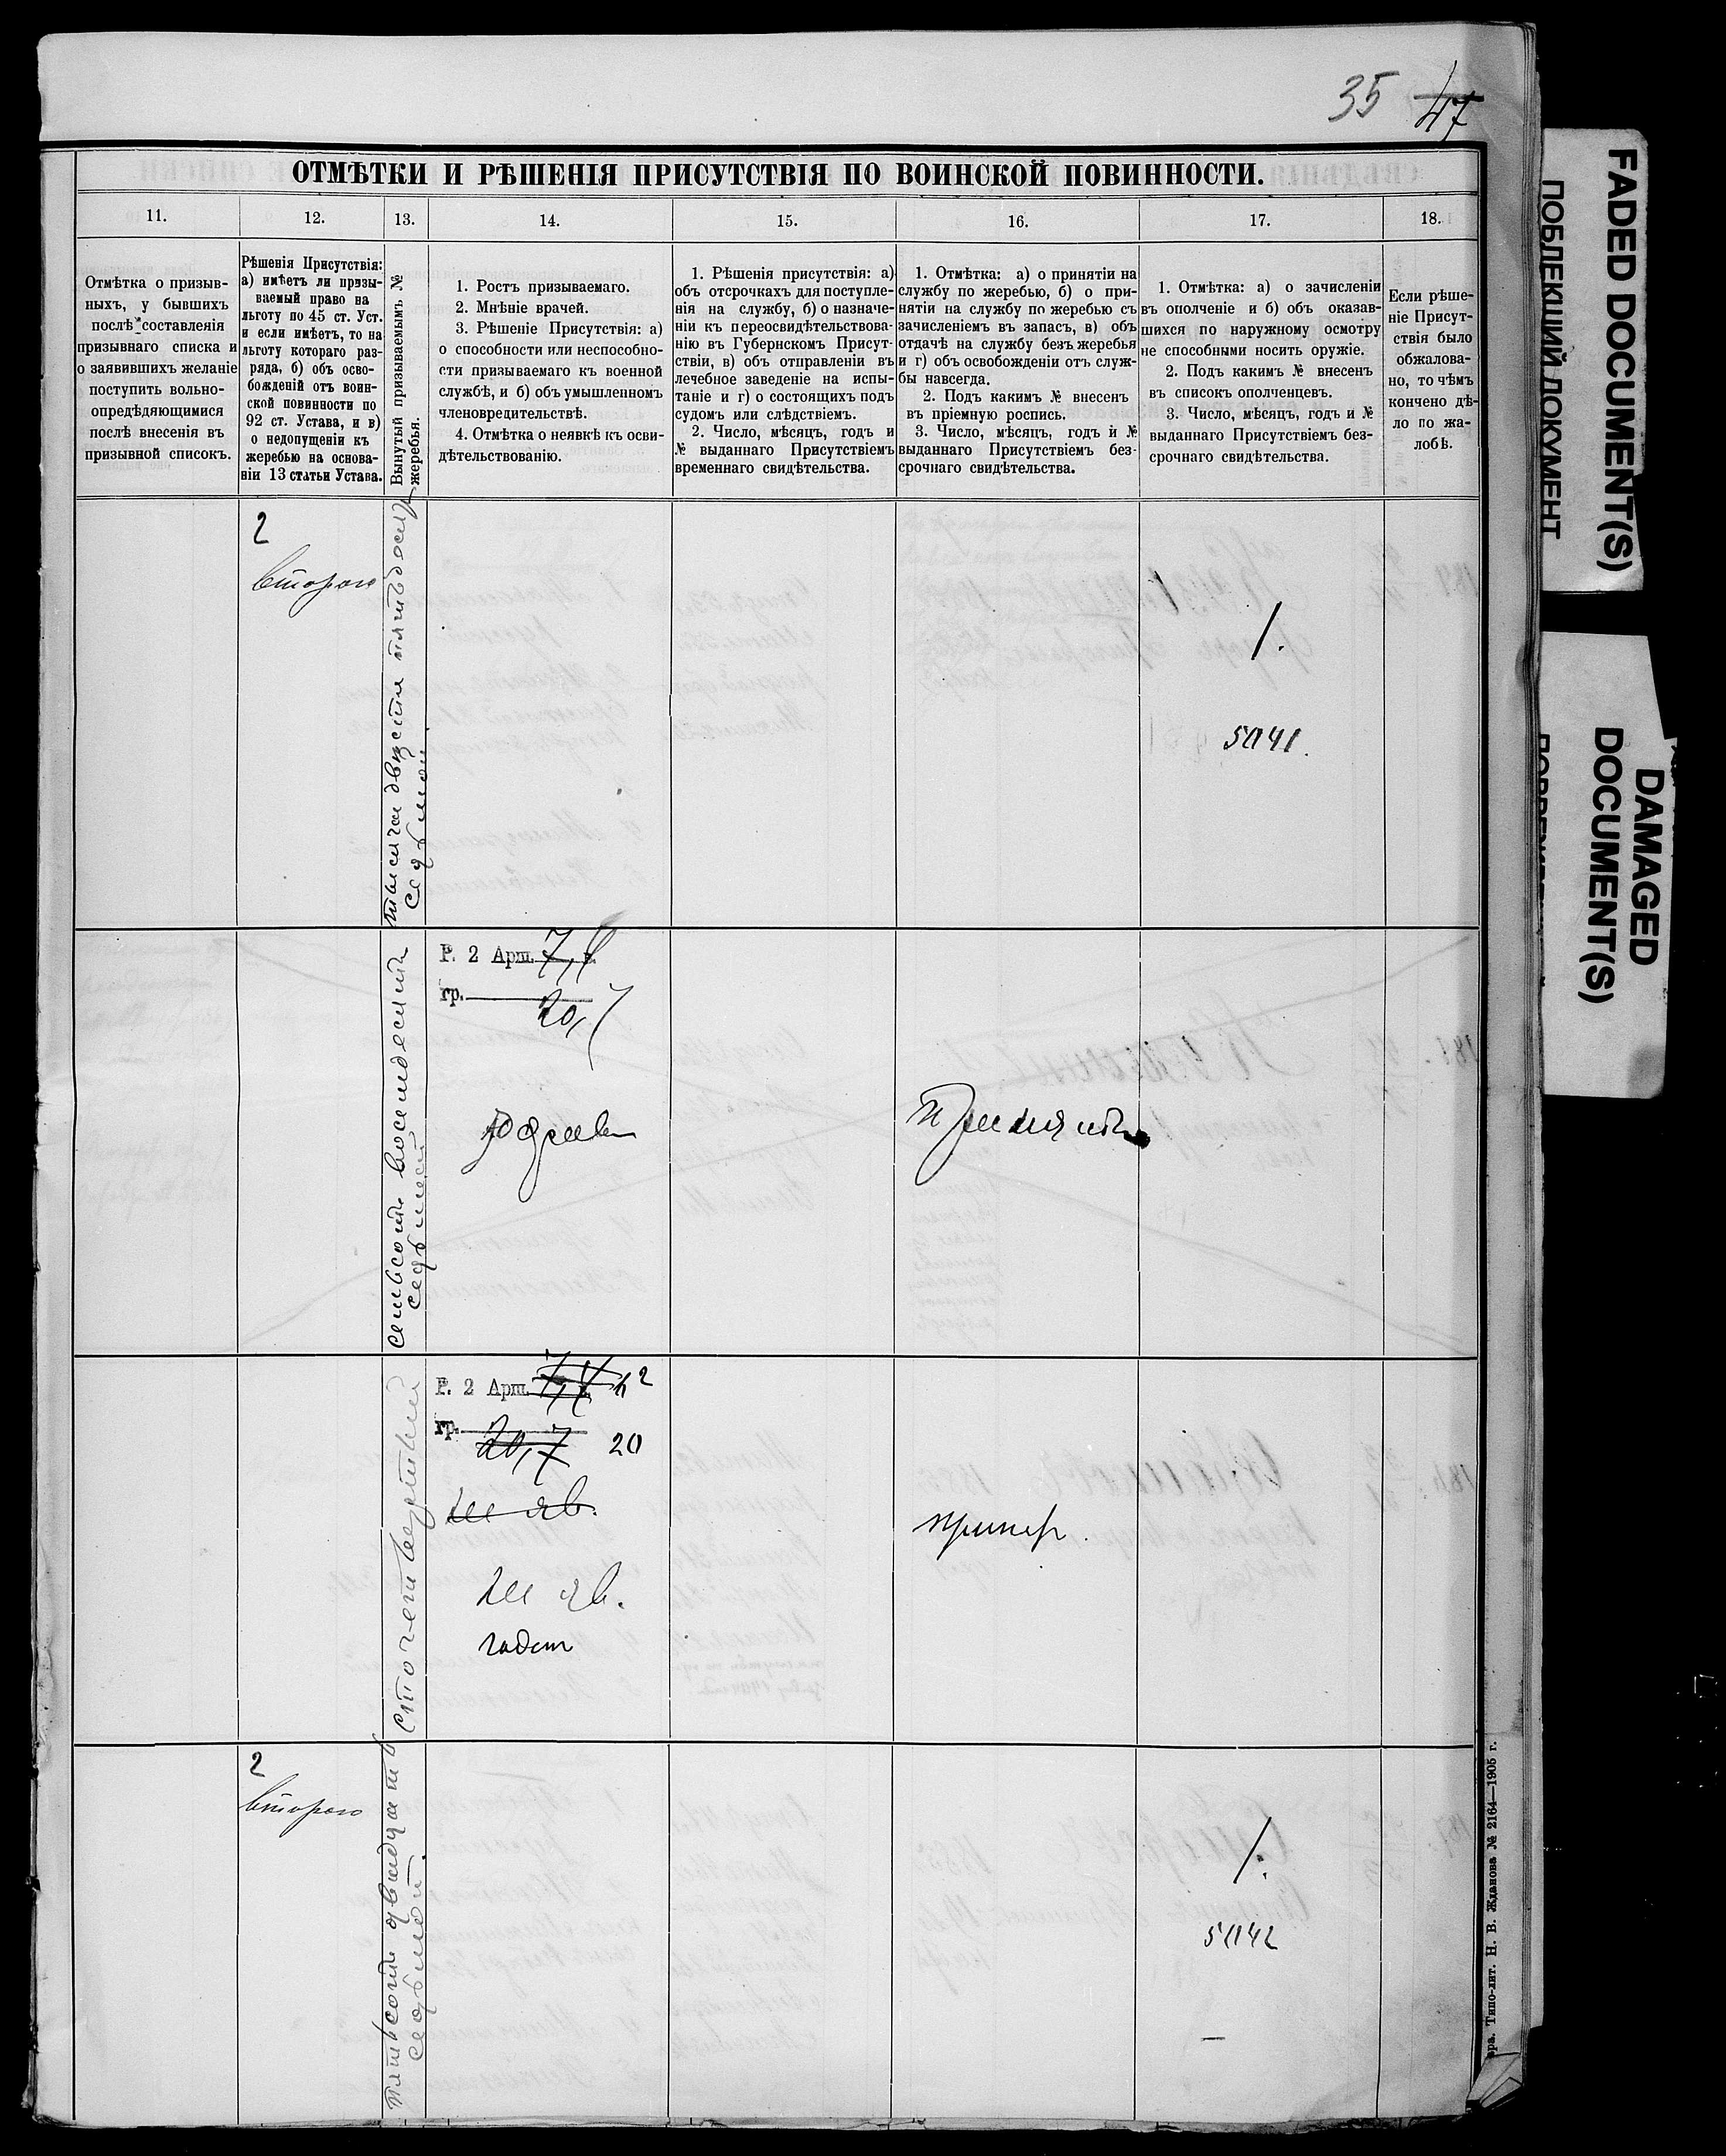 35 47
ОТМѢТКИ И РѢШЕНІЯ ПРИСУТСТВІЯ ПО ВОИНСКОЙ ПОВИННОСТИ.
11. 12. 13. 14. 15. 16. 17. 18.
Отмѣтка о призыв-
ныхъ, у бывшихъ
послѣ составленія
призывнаго списка и
о заявившихъ желаніе
поступить вольно-
опредѣдяющимися
послѣ внесенія въ
призывной списокъ.
Рѣшенія Присутствія:
а) имѣетъ ли призы-
ваемый право на
льготу по 45 ст. Уст.
и если имѣетъ, то на
льготу котораго раз-
ряда, б) объ осво-
божденій отъ воин-
ской повинности по
92 ст. Устава, и в)
о недопущеніи къ
жеребью на основа-
ніи 13 статьи Устава.
Вынутый призываемымъ №
жеребья.
1. Ростъ призываемаго.
2. Мнѣніе врачей.
3. Рѣшеніе Присутствія: а)
о способности или неспособно-
сти призываемаго къ военной
службѣ, и б) объ умышленномъ
членовредительствѣ.
4. Отмѣтка о неявкѣ къ осви-
дѣтельствованію.
1. Рѣшенія присутствія: а)
объ отсрочкахъ для поступле-
нія на службу, б) о назначе-
ніи къ переосвидѣтельствова-
нію въ Губернскомъ Присут-
ствіи, в) объ отправленіи въ
лечебное заведеніе на испы-
таніе и г) о состоящихъ подъ
судомъ или слѣдствіемъ.
2. Число, мѣсяцъ, годъ и
№ выданнаго Присутствіемъ
временнаго свидѣтельства.
1. Отмѣтка: а) о принятіи на
службу по жеребью, б) о при-
нятіи на службу по жеребью съ
зачисленіемъ въ запасъ, в) объ
отдачѣ на службу безъ жеребья
и г) объ освобожденіи отъ служ-
бы навсегда.
2. Подъ какимъ № внесенъ
въ пріемную роспись.
3. Число, мѣсяцъ, годъ и №
выданнаго Присутствіемъ без-
срочнаго свидѣтельства.
1. Отмѣтка: а) о зачисленіи
въ ополченіе и б) объ оказав-
шихся по наружному осмотру
не способными носить оружіе.
2. Подъ какимъ № внесенъ
въ списокъ ополченцевъ.
3. Число, мѣсяцъ, годъ и №
выданнаго Присутствіемъ без-
срочнаго свидѣтельства.
Если рѣше-
ніе Присут-
ствія было
обжалова-
но, то чѣмъ
кончено дѣ-
ло по жа-
лобѣ.
2
второго
тысяча двѣсти пятьдесят
седьмой
1.
5041.
семьсотъ восемдесятъ
седьмой
Р. 2 Арш. 7,4 в.
гр. 20,7
Годенъ
Принятъ
сто четвертый
Р. 2 Арш. 7,4 в. 4 2
гр. 20,7 20
не яв.
не яв.
годен
принят
2
второго
пятьсотъ двадцать
седьмой.
1.
5042
вра. Типо-лит. Н. В. Жданова № 2164—1905 г.
FADED DOCUMENT(S)
ПОБЛЕКШИЙ ДОКУМЕНТ
DAMAGED
DOCUMENT(S)